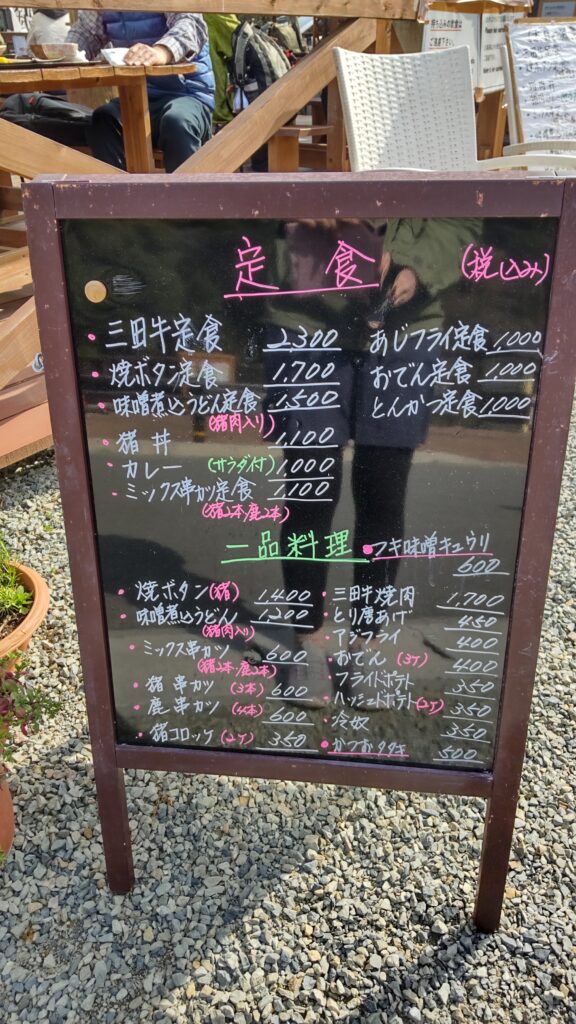 定食 (税込み)
・三田牛定食 2,300
・焼ボタン定食 1,700
・味噌煮込うどん定食 1,500
(猪肉入り)
・猪丼 1,100
・カレー (サラダ付) 1,000
・ミックス串カツ定食 1,100
(猪2本/鹿2本)
あじフライ定食 1,000
おでん定食 1,000
とんかつ定食 1,000
一品料理
・焼ボタン (猪) 1,400
・味噌煮込うどん 1,200
(猪肉入り)
・ミックス串カツ 600
(猪2本/鹿2本)
・猪串カツ (3本) 600
・鹿串カツ (4本) 600
・猪コロッケ (2ケ) 350
・フキ味噌キュウリ
600
・三田牛焼肉 1,700
・とり唐あげ 450
・アジフライ 400
・おでん (3ケ) 400
・フライドポテト 350
・ハッシュドポテト (2ケ) 350
・冷奴 350
・かつおタタキ 500